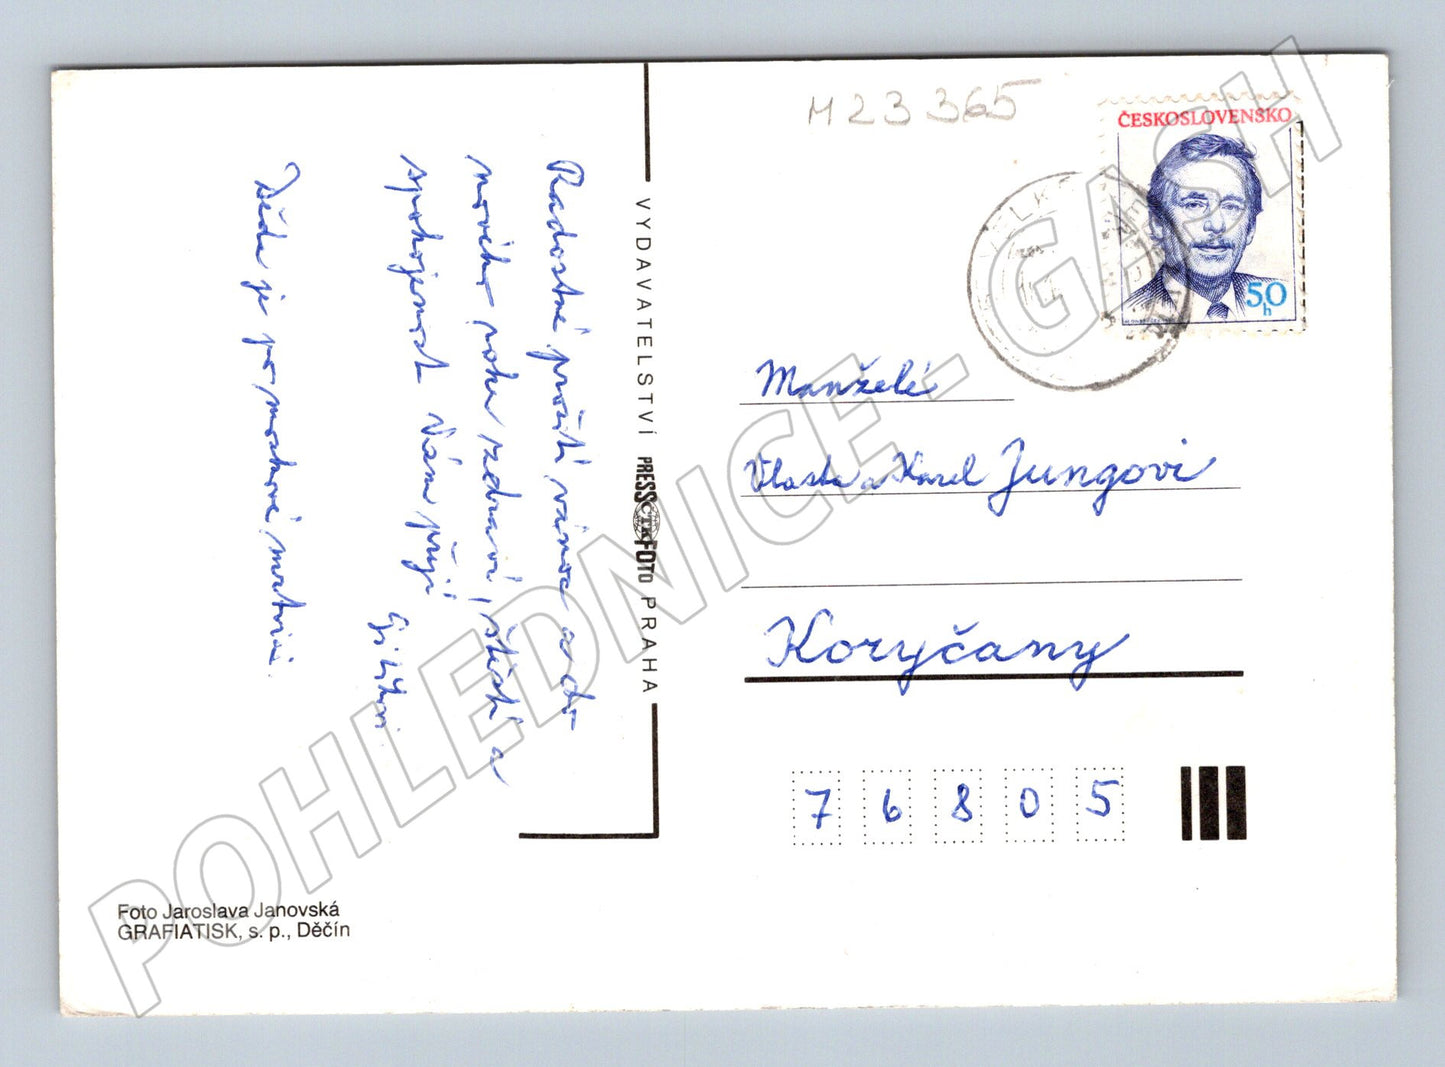 M 23 365
ČESKOSLOVENSKO
50
h
Radostné prožití vánoc a do
nového roku zdraví, štěstí a
spokojenost Vám přejí
Děda je po mrtvici
VYDAVATELSTVÍ PRESSFOTO PRAHA
ČTK
Manželé
Vlasta a Karel Jungovi
Koryčany
7 6 8 0 5
Foto Jaroslava Janovská
GRAFIATISK, s. p., Děčín
POHLEDNICE - GASH